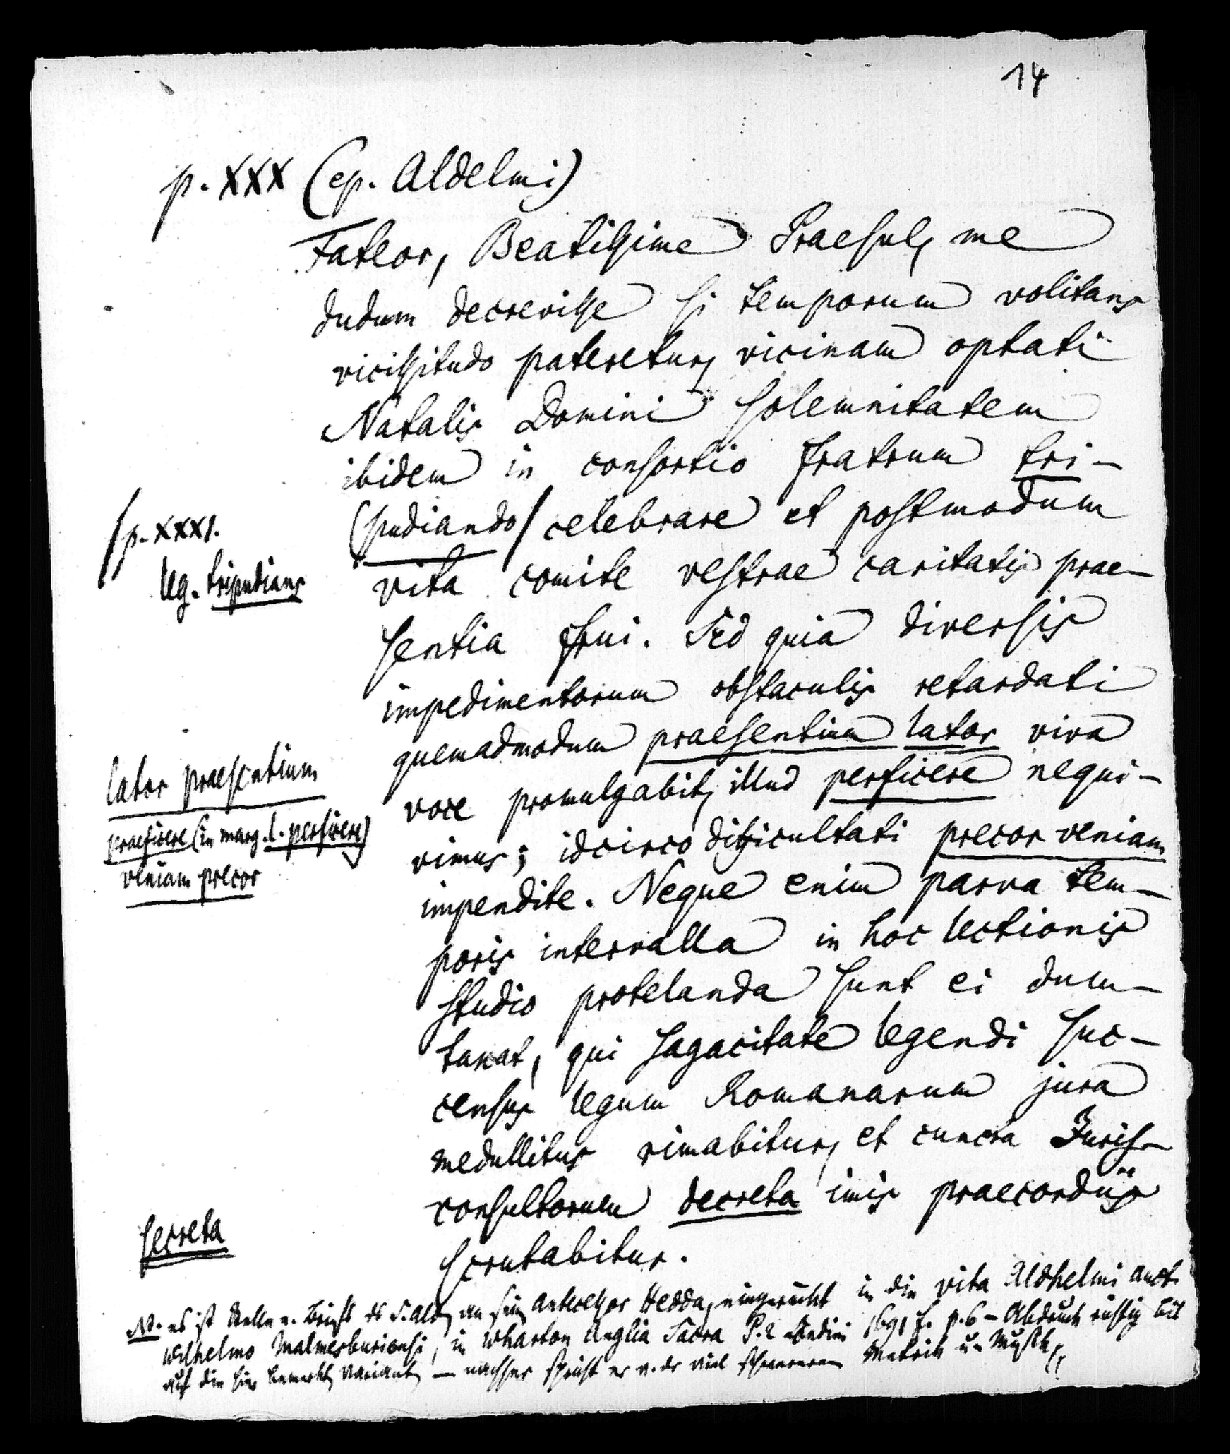 14
p. XXX (ep. Aldelmi)
Fateor, Beatissime Praesul, me
dudum decrevisse si temporum volitans
vicissitudo pateretur, vicinam optati
Natalis Domini solemnitatem
ibidem in consortio fratrum tri-
(pudiando/ celebrare et postmodum
vita comite vestrae caritatis prae-
sentia frui. Sed quia diversis
impedimentorum obstaculis retardati
quemadmodum praesentium lator viva
voce promulgabit, illud perficere nequi-
vimus; idcirco difficultati precor veniam
impendite. Neque enim parva tem-
poris intervalla in hoc lectionis
studio protelanda sunt ei dum-
taxat, qui sagacitate legendi suc-
census legum Romanarum jura
medullitus rimabitur, et cuncta Juris-
consultorum decreta imis praecordiis
scrutabitur.
/p. XXXI.
leg. tripudians
lator praesentium
praeficere (in marg. l. perficere)
veniam precor
secreta
NB. es ist Stelle e. Briefs des S. Ald. an sein antecessor Hedda, eingerückt in die vita Aldhelmi auct.
Wilhelmo Malmesburiensi, in Wharton Anglia Sacra P. 2 Londini 1691 f. p. 6 – Abdruck richtig bis
auf die hier bemerkten Varianten – nachher spricht er v. der viel schwereren Metrik u. Musik